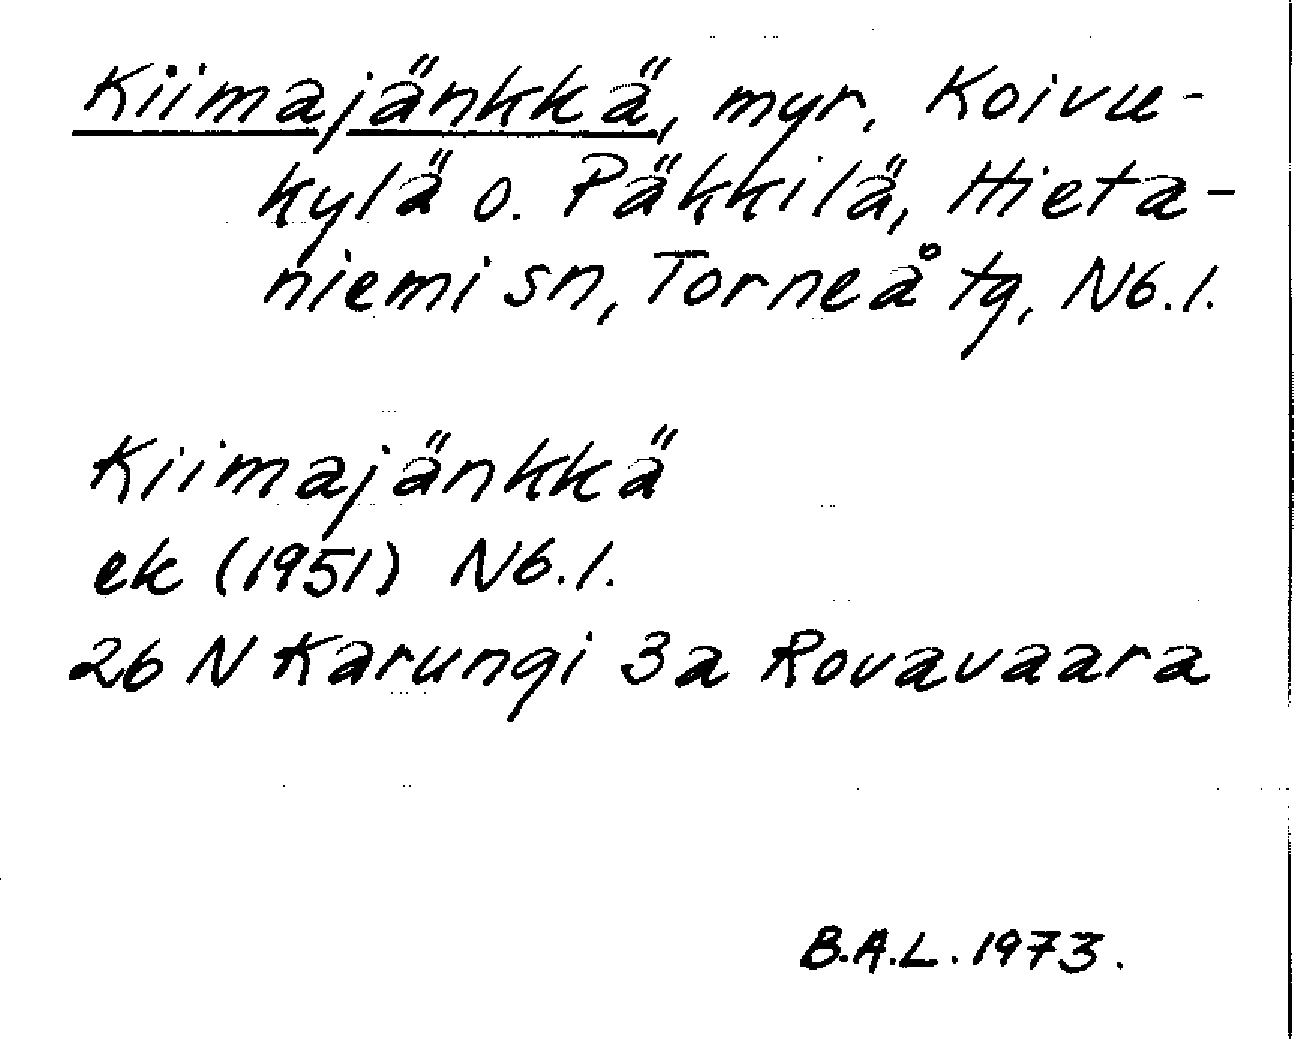 Kiimajänkkä, myr, Koivu-
kylä o. Päkkilä, Hieta-
niemi sn, Torneå tg, N6.1.
Kiimajänkkä
ek (1951) N6.1.
26 N Karungi 3a Rovavaara
B.A.L. 1973.